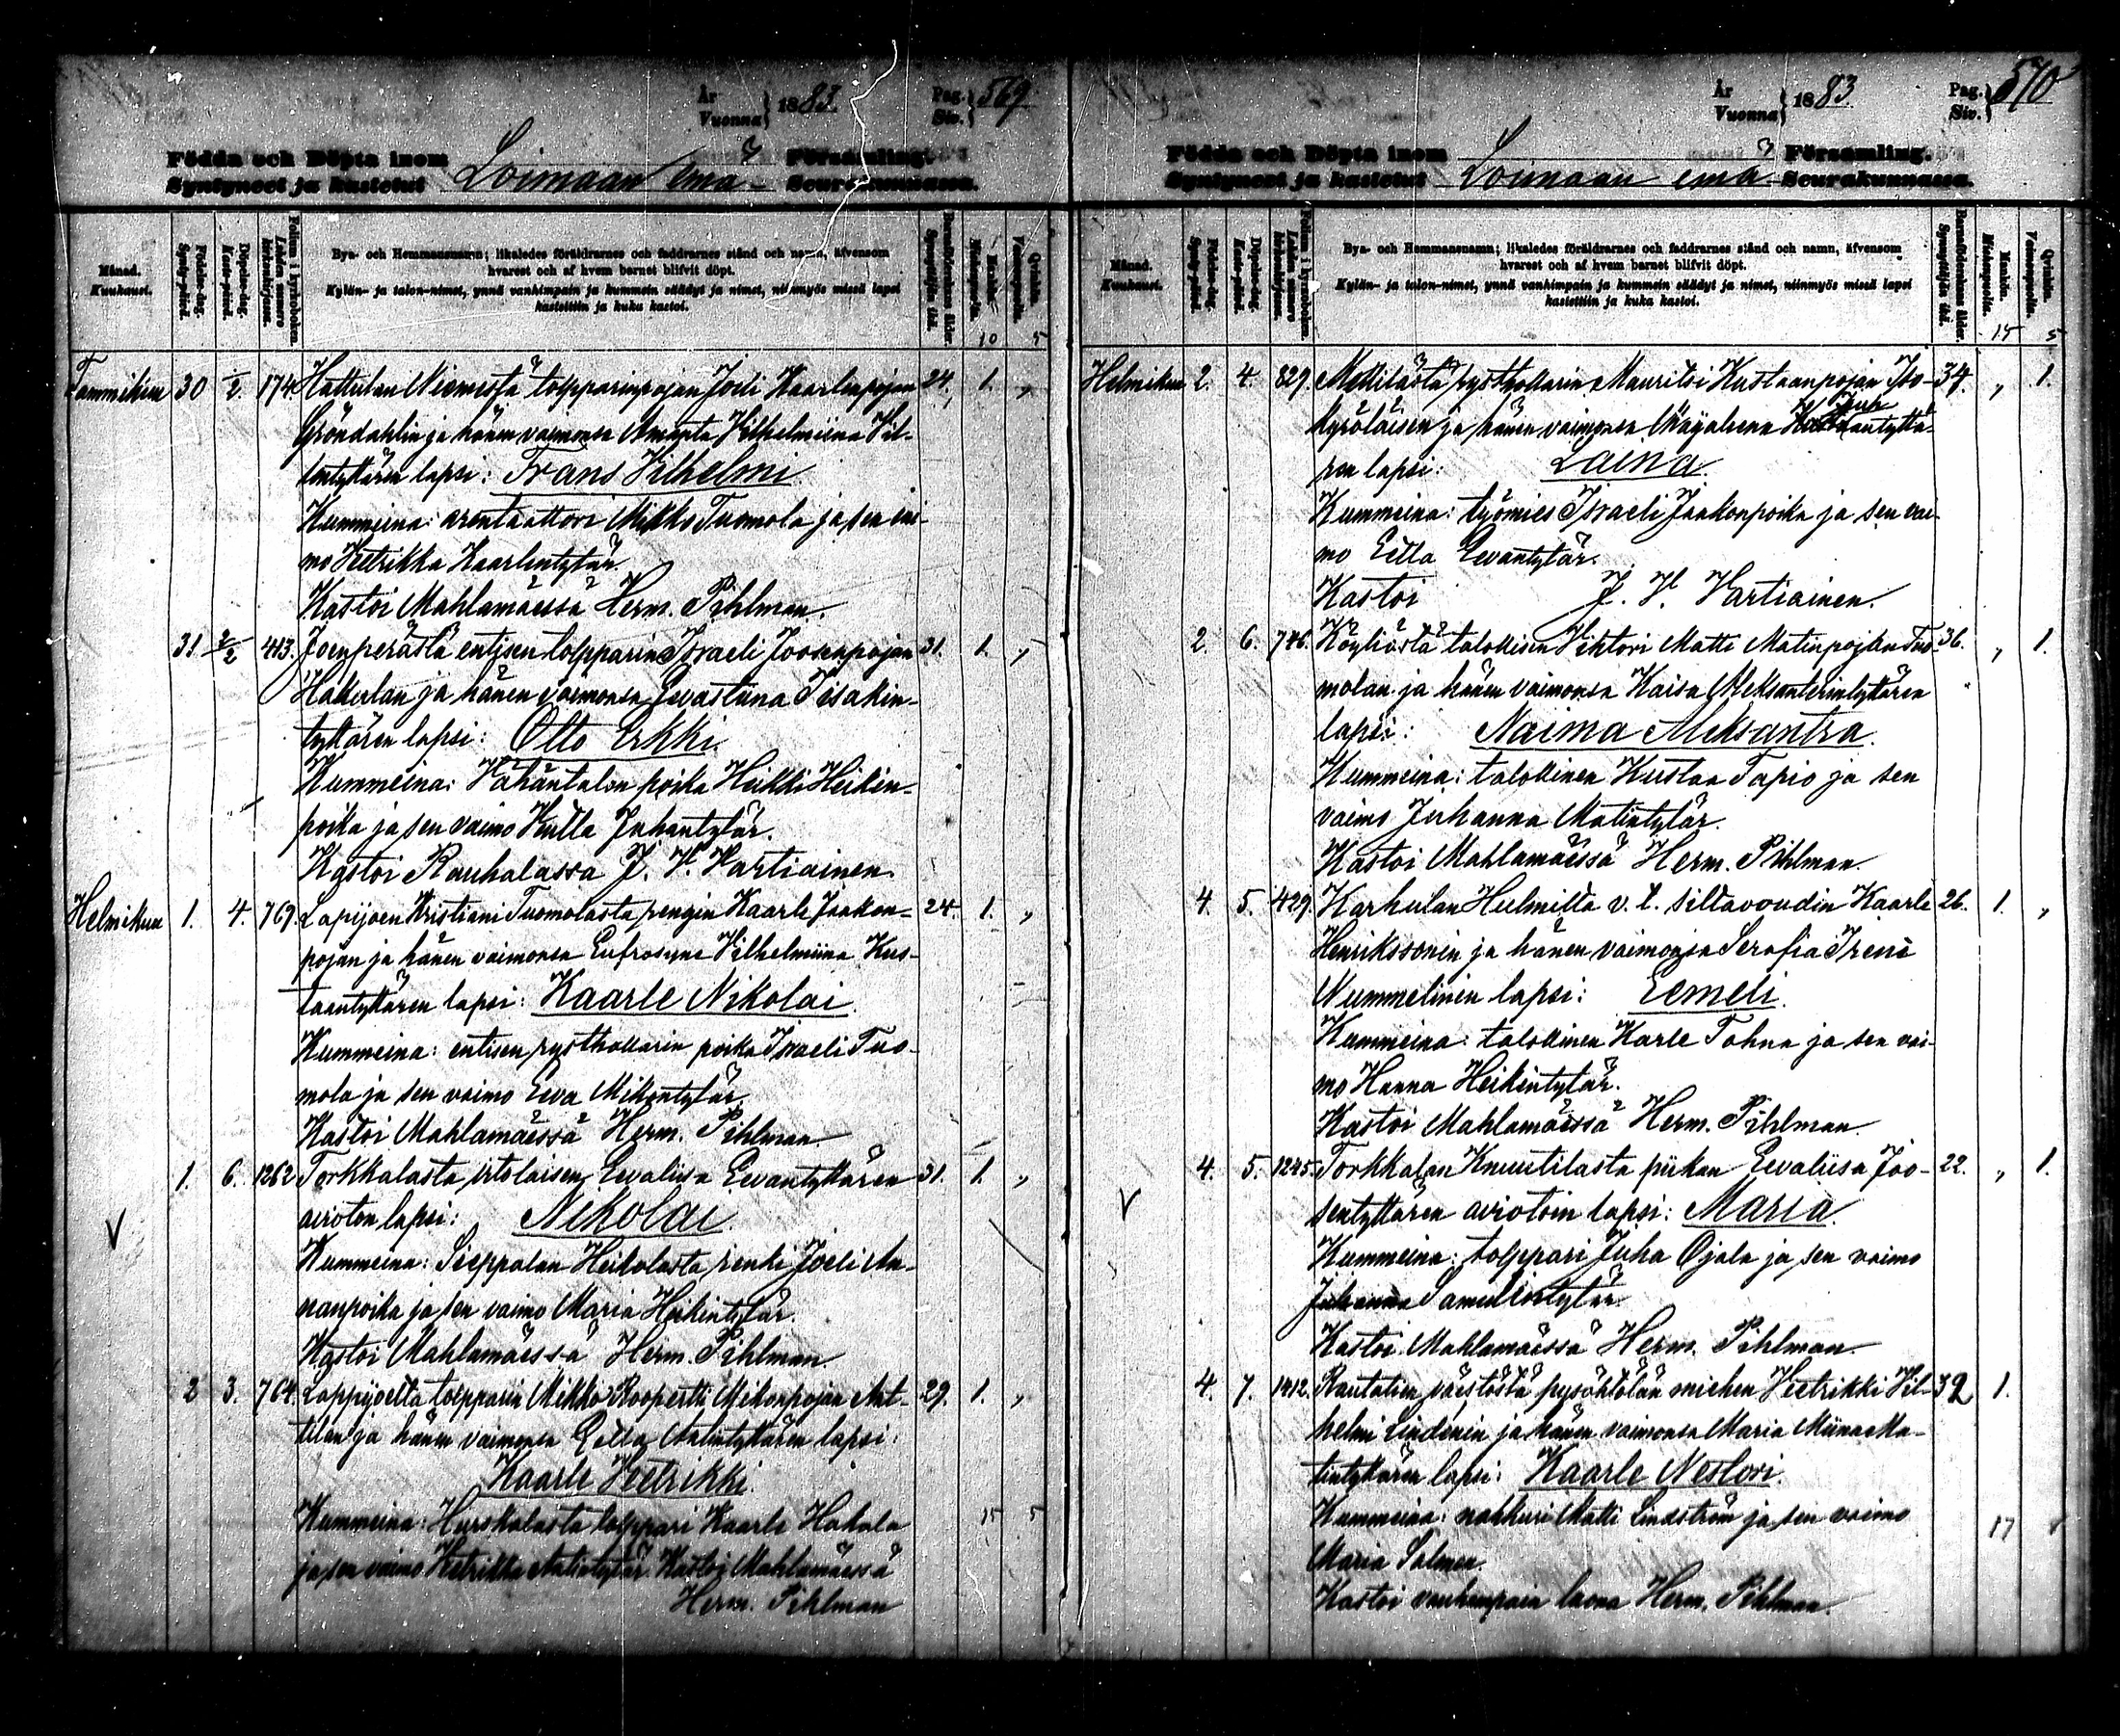 År
Vuonna } 1883.
Pag.
Siv. } 569
Födda och Döpta inom
Syntyneet ja kastetut
Loimaan Emä-
Församling.
Seurakunnassa.
Månad.
Kuukausi.
Födelse-dag.
Synty-päivä.
Döpelse-dag.
Kaste-päivä.
Folium i kyrkoboken.
Lehden numero kirkonkirjassa.
Bya- och Hemmansnamn; likaledes föräldrarnes och faddrarnes stånd och namn, äfvensom
hvarest och af hvem barnet blifvit döpt.
Kylän- ja talon-nimet, ynnä vanhimpain ja kummein säädyt ja nimet, niinmyös missä lapsi
kastettiin ja kuka kastoi.
Barnföderskans ålder.
Synnyttäjän ikä.
Mankön.
Miehenpuolia.
Qvinkön.
Vaimonpuolia.
10 5
Tammikuu 30 /2. 174. Hattulan Niemistä tolpparinpojan Joeli Kaarlenpojan 24. 1. „
Gröndahlin ja hänen vaimonsa Amanta Vilhelmiina Vil-
lentyttären lapsi: Frans Vilhelmi
Kummeina: arentaattori Mikko Tuomola ja sen vai-
mo Hetrikka Kaarlentytär.
Kastoi Mahlamäessä Herm. Pihlman.
31. 2/2 413. Joenperästä entisen tolpparin Israeli Joosepinpojan 31. 1. „
Hakulan ja hänen vaimonsa Eevastiina Iisakin-
tyttären lapsi: Otto Erkki.
Kummeina: Vähäntalon poika Heikki Heikin-
poika ja sen vaimo Hulta Juhantytär.
Kastoi Rauhalassa J. V. Vartiainen
Helmikuu 1. 4. 769. Lapijoen Kristiani Tuomolasta rengin Kaarle Jaakon- 24. 1. „
pojan ja hänen vaimonsa Eufrosyne Vilhelmiina Kus-
taantyttären lapsi: Kaarle Nikolai.
Kummeina: entisen rysthollarin poika Israeli Tuo-
mola ja sen vaimo Eeva Mikontytär.
Kastoi Mahlamäessä Herm. Pihlman
1. 6. 1262 Torkkalasta itsläisen Eevaliisa Eevantyttären 31. 1. „
avioton lapsi: Nikolai.
Kummeina: Sieppalan Heikolasta renki Joeli An-
nanpoika ja sen vaimo Maria Heikintytär.
Kastoi Mahlamäessä Herm. Pihlman.
2 3. 764. Lappijoelta tolpparin Mikko Roopertti Mikonpojan Ant- 29. 1. „
tilan ja hänen vaimonsa Eetla Antintyttären lapsi:
Kaarle Vietrikki.
Kummeina: Hurskalasta tolppari Kaarle Hakala
ja sen vaimo Hetrikka Antintytär. Kastoi Mahlamäessä
Herm. Pihlman
15 5
År
Vuonna } 1883.
Pag.
Siv. } 570
Födda och Döpta inom
Syntyneet ja kastetut
Loimaan emä-
Församling.
Seurakunnassa.
Månad.
Kuukausi.
Födelse-dag.
Synty-päivä.
Döpelse-dag.
Kaste-päivä.
Folium i kyrkoboken.
Lehden numero kirkonkirjassa.
Bya- och Hemmansnamn; likaledes föräldrarnes och faddrarnes stånd och namn, äfvensom
hvarest och af hvem barnet blifvit döpt.
Kylän- ja talon-nimet, ynnä vanhimpain ja kummein säädyt ja nimet, niinmyös missä lapsi
kastettiin ja kuka kastoi.
Barnföderskans ålder.
Synnyttäjän ikä.
Mankön.
Miehenpuolia.
Qvinkön.
Vaimonpuolia.
15 5
Helmikuu 2. 4. 829. Mellilästä rysthollarin Mauritsi Kustaanpojan Iso- 34. „ 1.
kyröläisen ja hänen vaimonsa Majaleena Juhantyttä-
ren lapsi: Laina.
Kummeina: työmies Israeli Jaakonpoika ja sen vai-
mo Eetla Eevantytär.
Kastoi J. V. Vartiainen.
2. 6. 746. Köyliöstä talollisen Vihtori Matti Matinpojan Tuo- 36. „ 1.
molan ja hänen vaimonsa Kaisa Aleksanterintyttären
lapsi: Naima Aleksantra.
Kummeina: talollinen Kustaa Tapio ja sen
vaimo Juhanna Matintytär.
Kastoi Mahlamäessä Herm. Pihlman.
4. 5. 429. Karhulan Hulmilta v. t. siltavoudin Kaarle 26. 1. „
Henrikssonin ja hänen vaimonsa Serafia Irene
Nummelinin lapsi: Eemeli.
Kummeina: talollinen Karle Tohna ja sen vai-
mo Hanna Heikintytär.
Kastoi Mahlamäessä Herm. Pihlman.
4. 5. 1245. Torkkalan Knuutilasta piikan Eevaliisa Joo- 22. „ 1.
sentyttären aviotoin lapsi: Maria.
Kummeina: tolppari Juha Ojala ja sen vaimo
Juhanna Samulintytär.
Kastoi Mahlamäessä Herm. Pihlman.
4. 7. 1412. Rautatien väestöstä pysähtölän miehen Vietrikki Vil- 32 1.
helmi Lindénin ja hänen vaimonsa Maria Miina Ma-
tintyttären lapsi: Kaarle Nestori.
Kummeina: nahkuri Matti Lindström ja sen vaimo
Maria Salmen.
Kastoi vanhempain luona Herm. Pihlman.
17